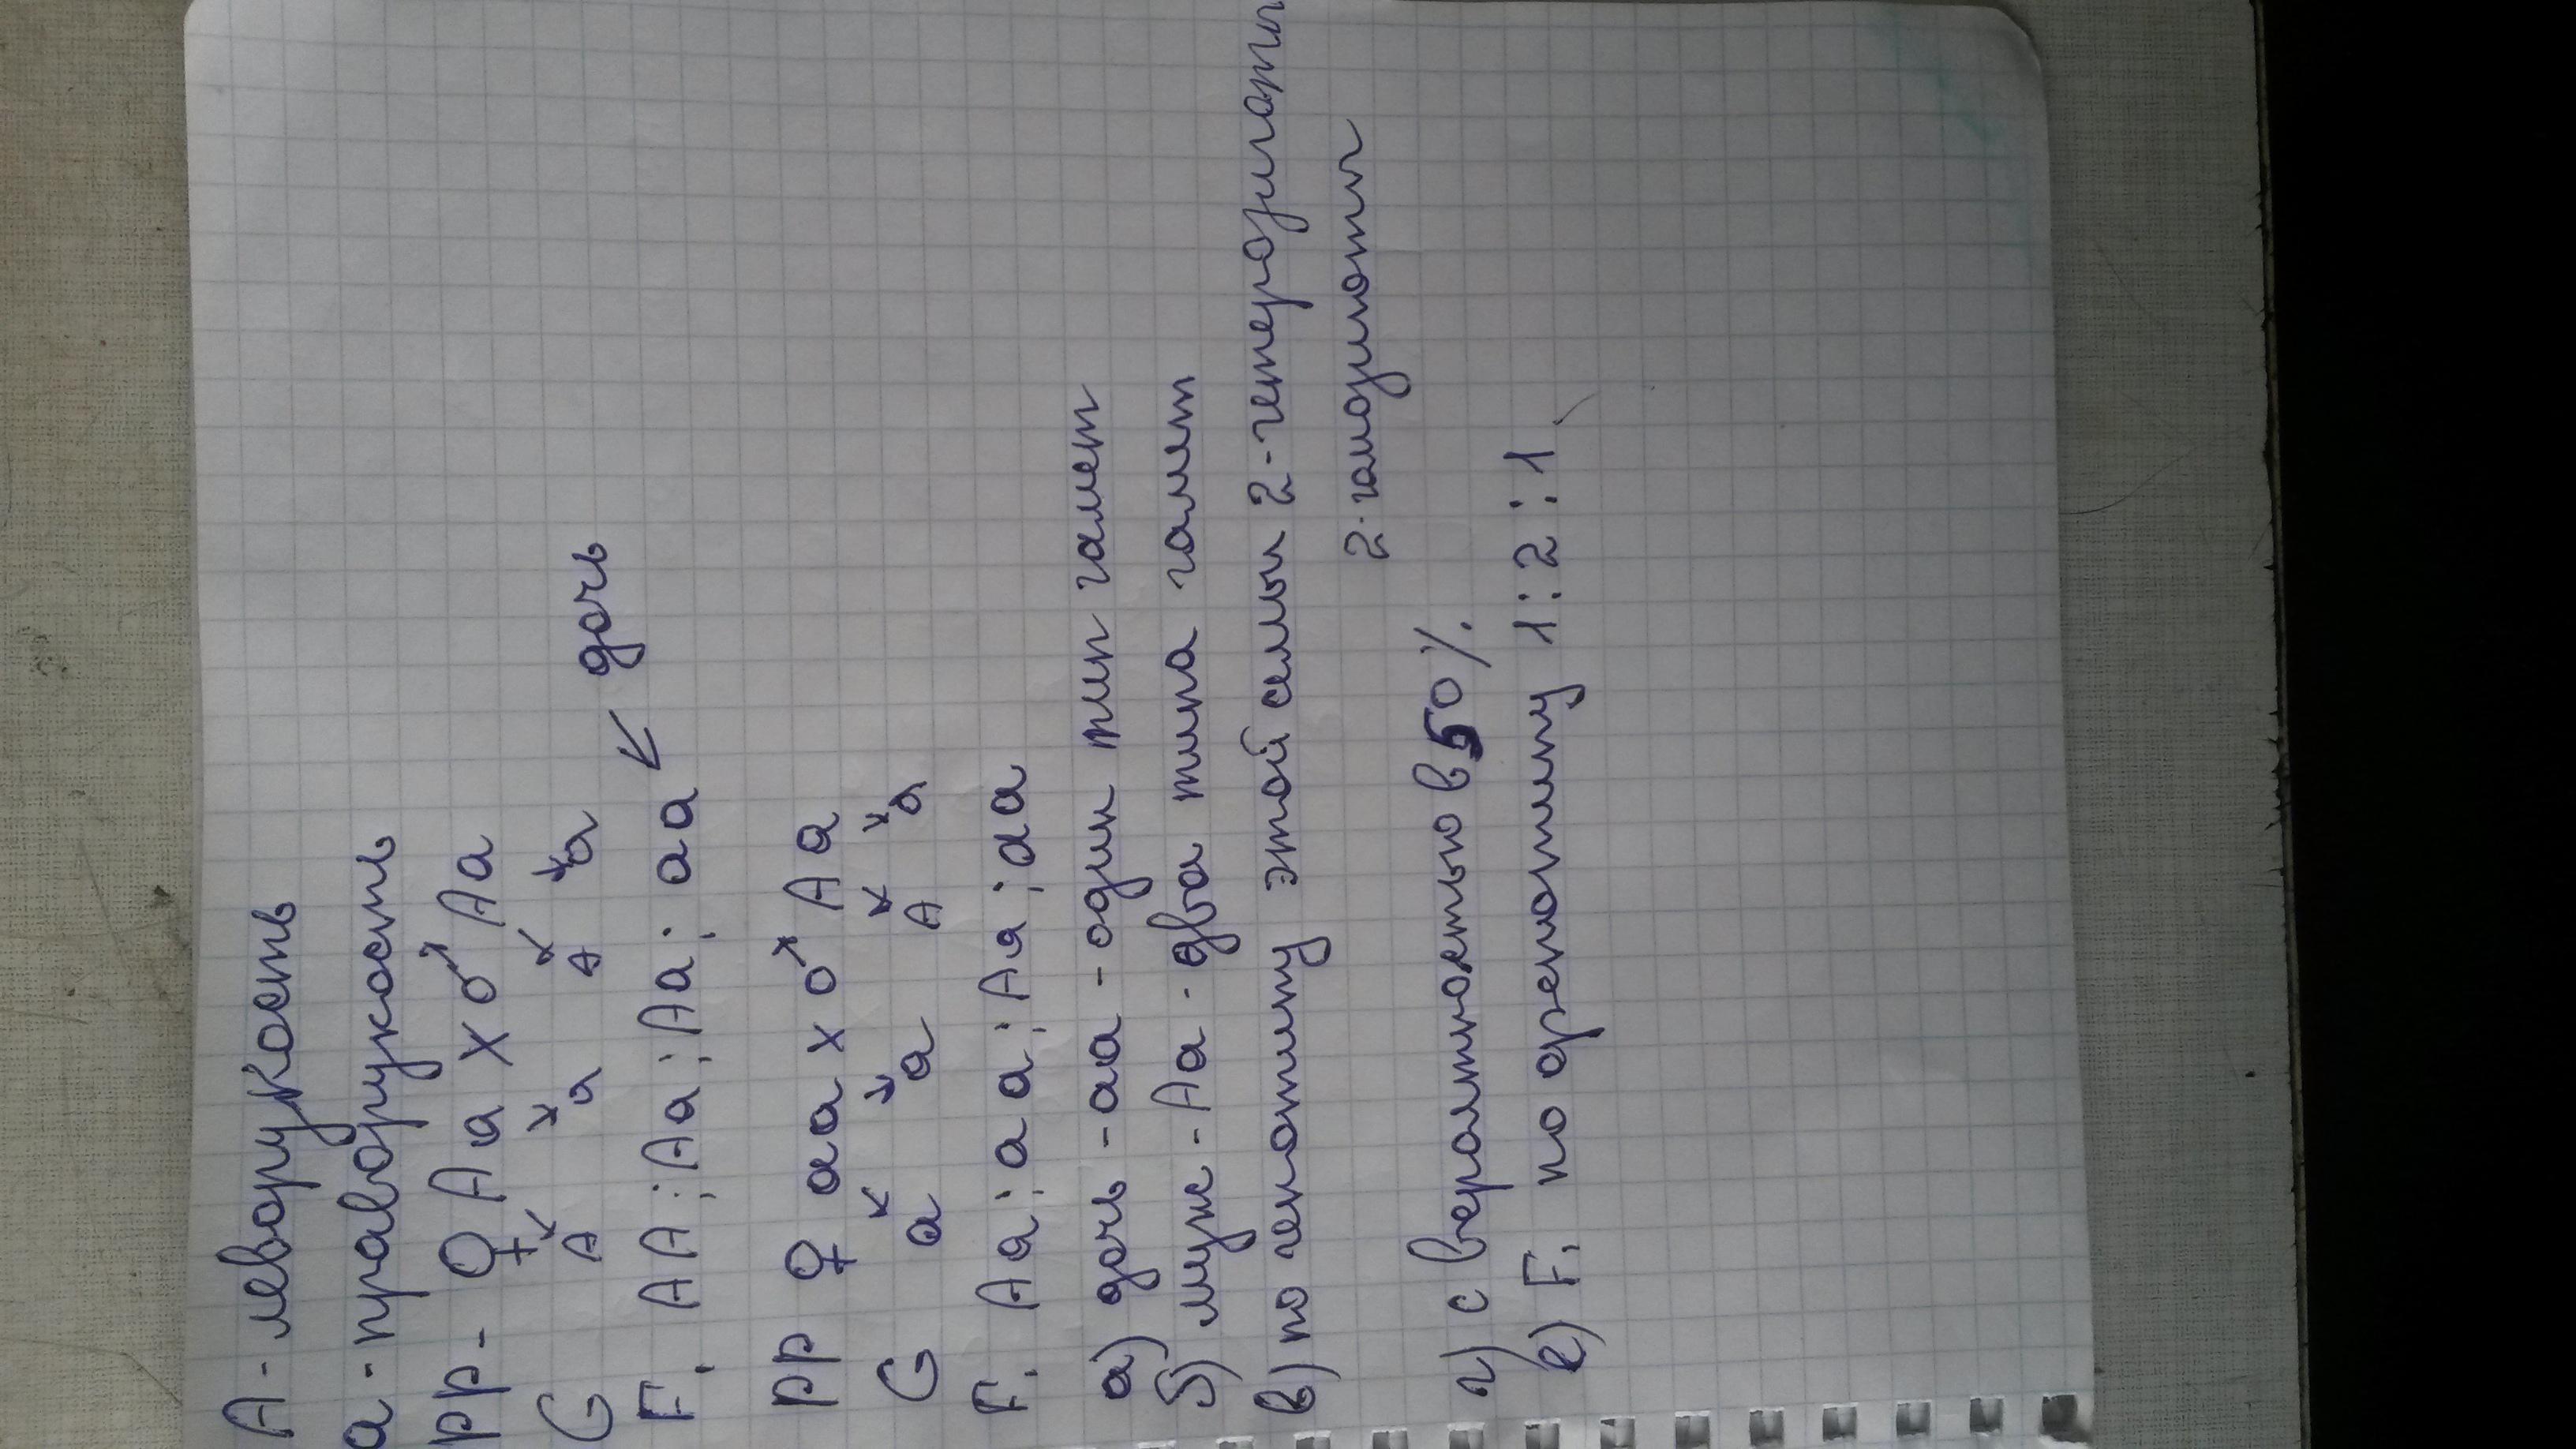 А - леворукость
а - праворукость
РР - ♀ Аа х ♂ Аа
G А а А а дочь
F₁ АА ; Аа ; Аа ; аа ↙
РР ♀ аа х ♂ Аа
G а а А а
F₁ Аа ; аа ; Аа ; аа
а) дочь - аа - один тип гамет
б) муж - Аа - два типа гамет
в) по генотипу этой семьи 2 - гетерозиготы
2 - гомозиготы
г) с вероятностью в 50%.
е) F₁ по фенотипу 1 : 2 : 1